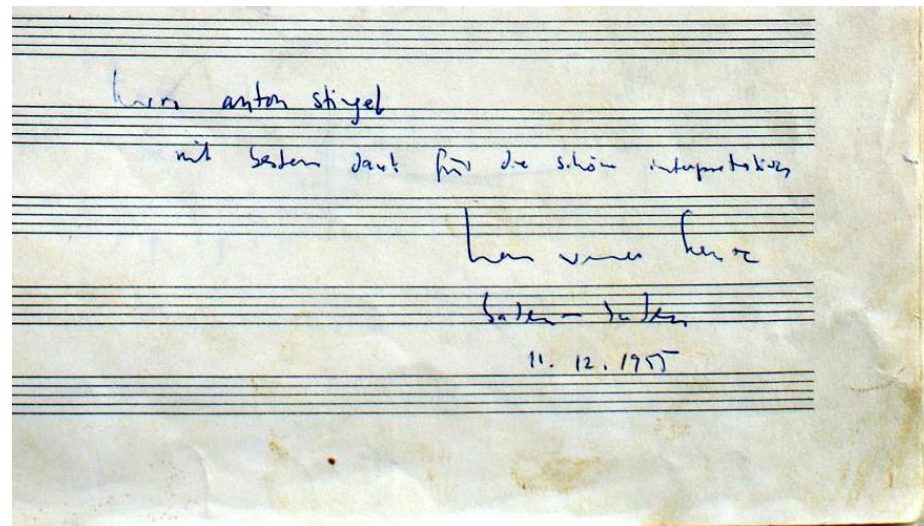 herrn anton stingel
mit bestem dank für die schöne interpretation
hans werner henze
baden-baden
11. 12. 1955